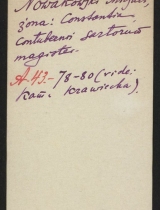 Nowakowski
żona: Constantia,
contubernii sartorum
magister.
A-43.-78-80 (vide:
kat. krawiecka).